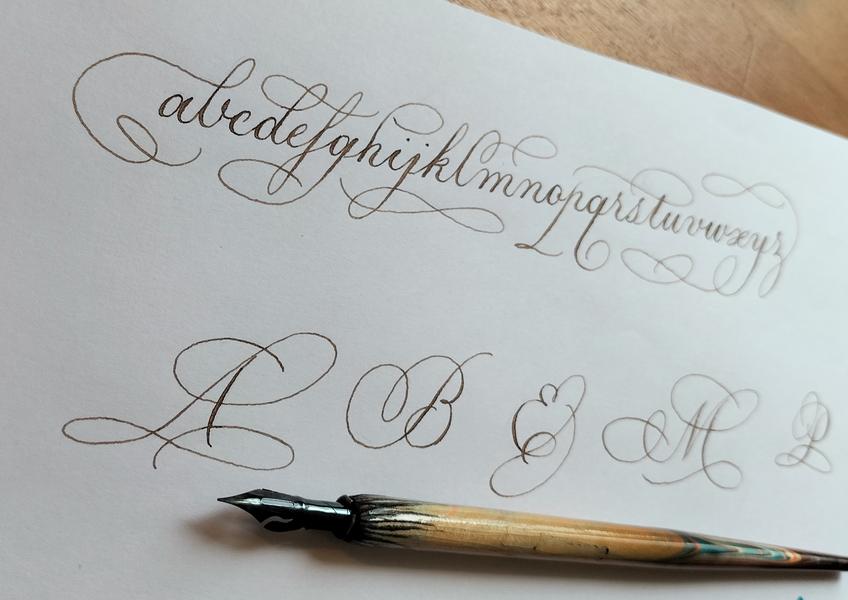 abcdefghijklmnopqrstuvwxyz
A B & M P